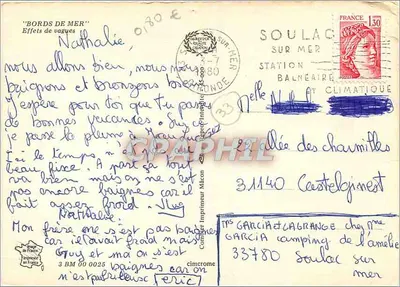 "BORDS DE MER"
Effets de vagues
0,80 €
Nathalie,
nous allons bien, nous nous
baignons et bronzons bon
j'espère pour toi que tu passe
de bonnes vacances. Sur ce
je passe la plume à
ici le temps, n'
beau, fixe! A part ça tout
va bien mais on ne s'est
pas encore baignés car il
fait assez froid. Guy
Nathalie.
Mon frère ne s'est pas baigné
car il avait froid mais
Guy et ma on s'est
baignés car on
n'est pas frileuse (eric)
3 BM 00 0025
cimcrome
Combier Imprimeur Mâcon
SUR-MER
GIRONDE
SOULAC
SUR MER
STATION
BALNÉAIRE
ET CLIMATIQUE
FRANCE
1,30
33
CPHPHIL
Melle
allée des charmilles
31140 Castelginest
GARCIA et LAGRANGE chez Mme
GARCIA camping de l'amélie
33780 Soulac sur
mer